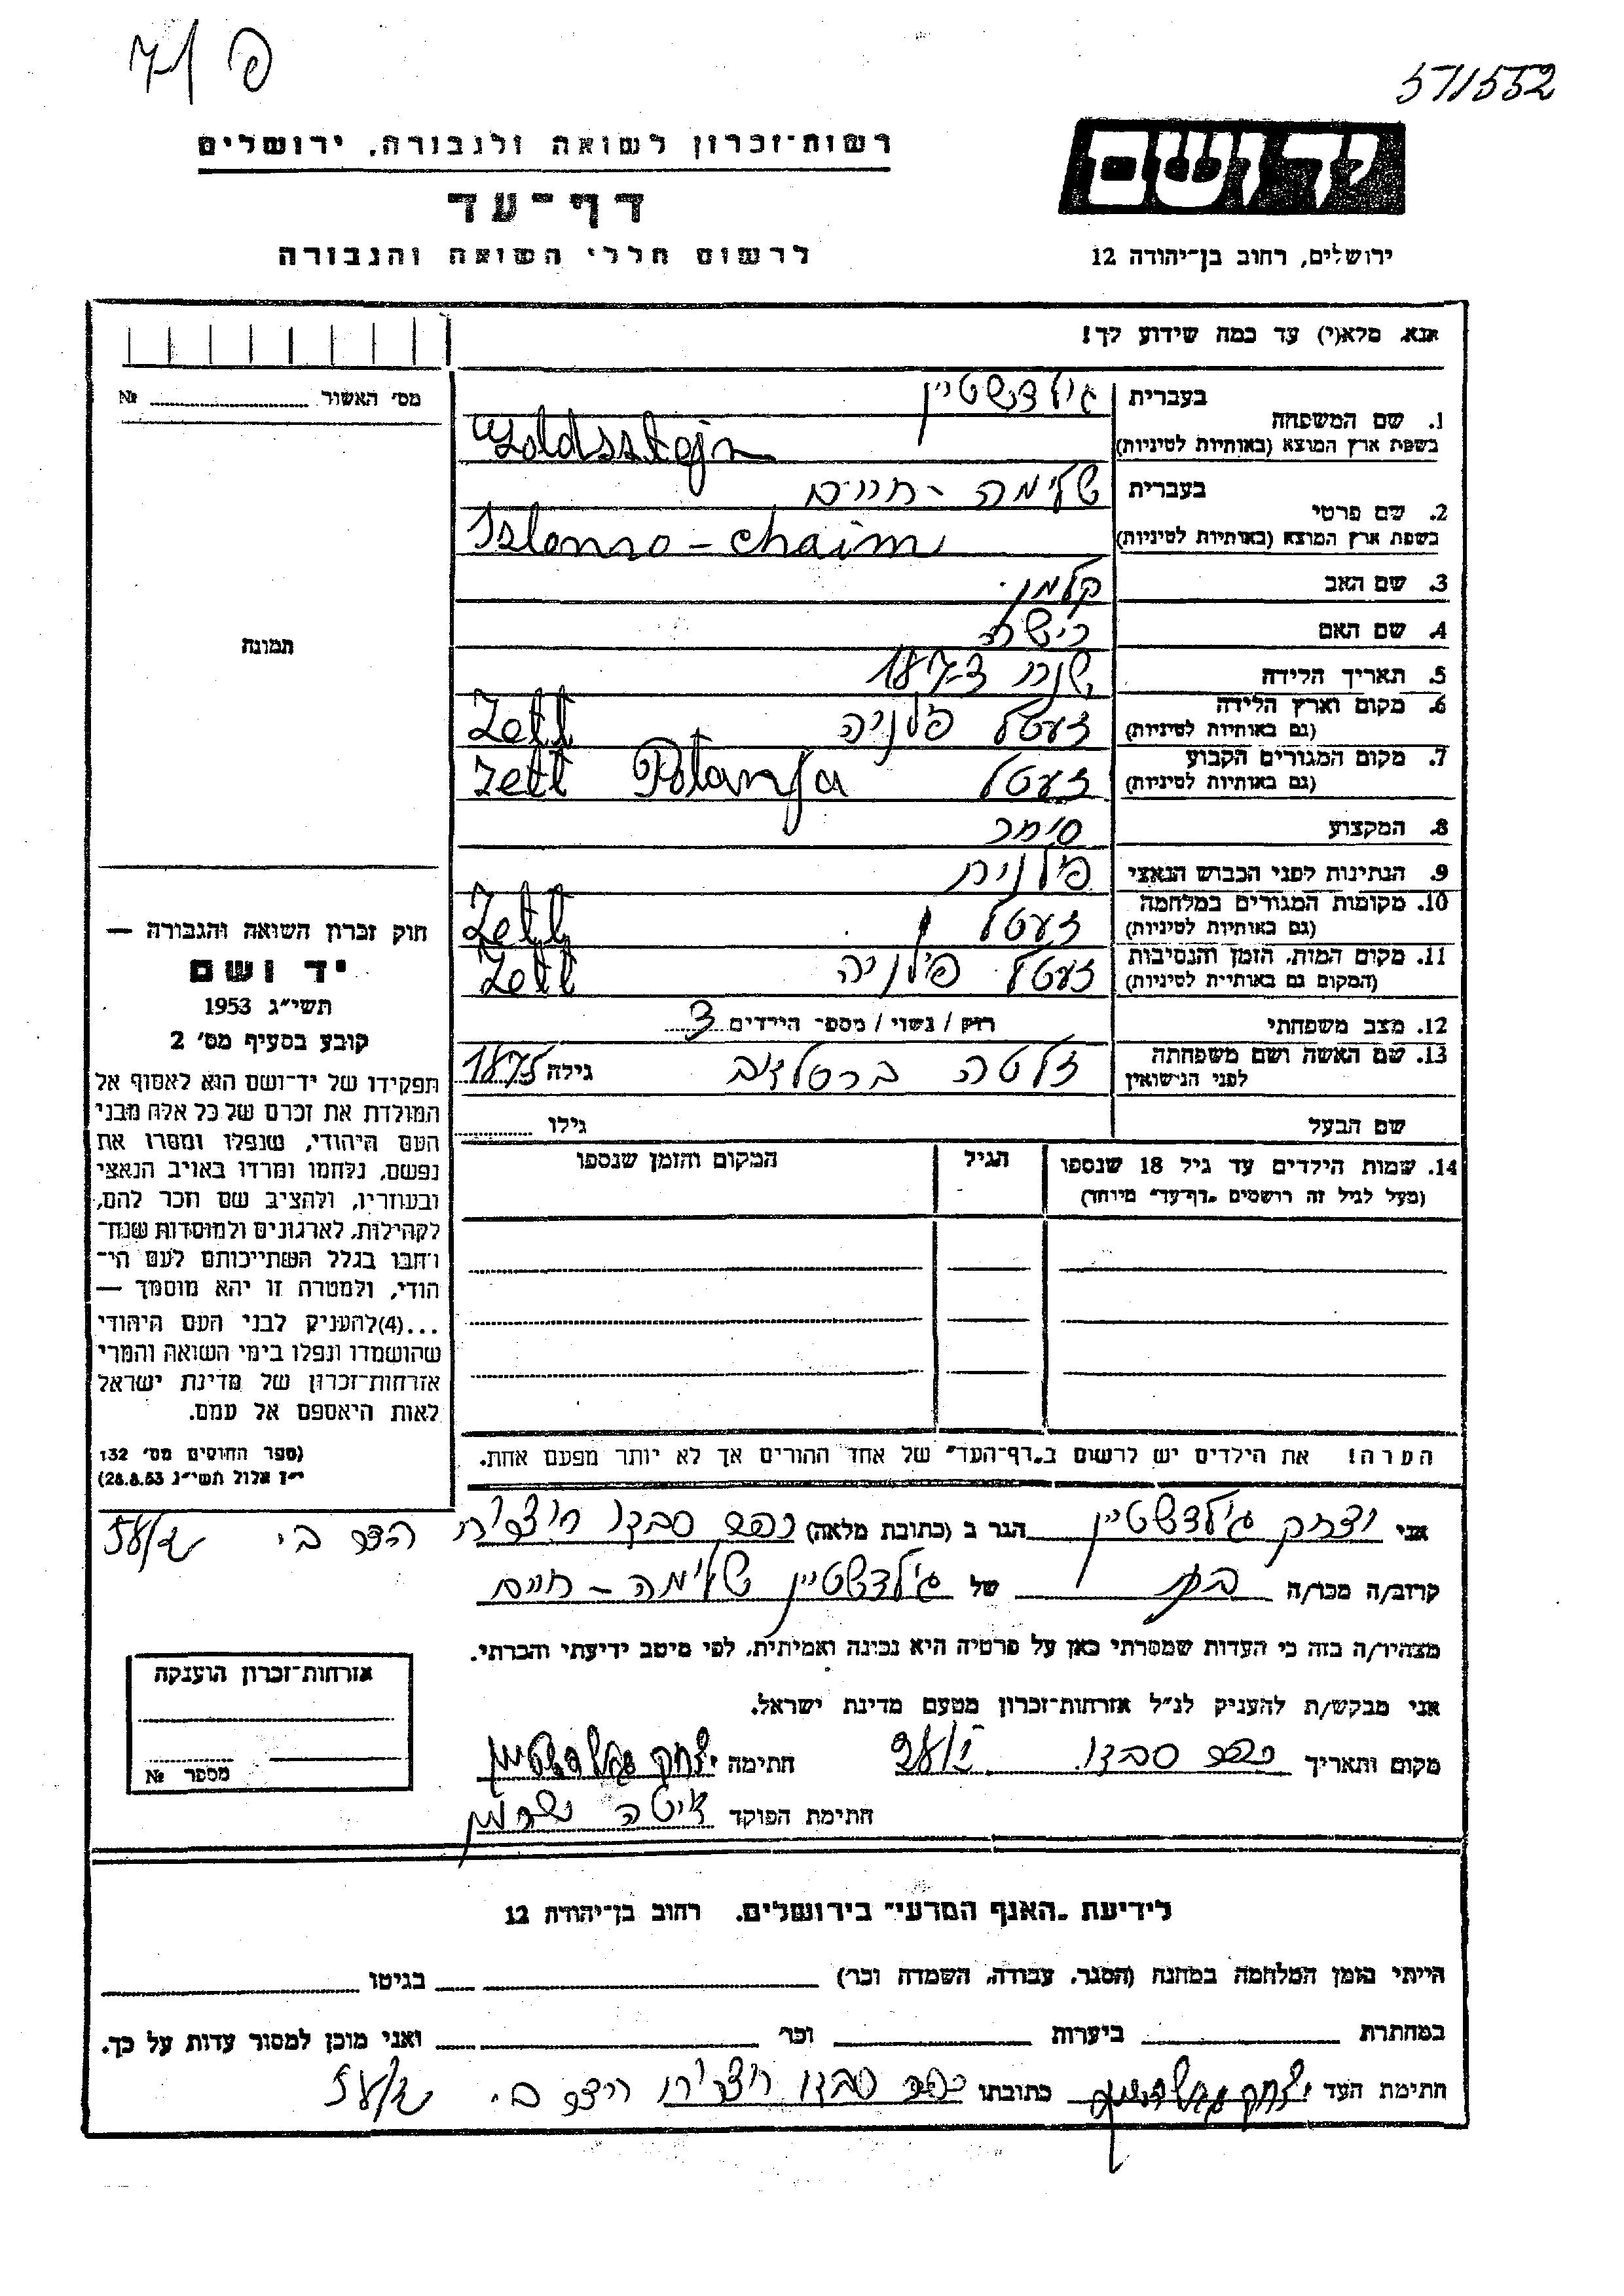 57/552
רשות-זכרון לשואה ולגבורה, ירושלים
דף-עד
לרשום חללי השואה והגבורה
יד ושם
ירושלים, רחוב בן-יהודה 12
אנא, מלא(י) עד כמה שידוע לך!
מס' האשור № 
1. שם המשפחה בעברית גולדשטיין
בשפת ארץ המוצא (באותיות לטיניות) Goldssztejn
2. שם פרטי בעברית שלימה - חיים
בשפת ארץ המוצא (באותיות לטיניות) Iszlomo - chaim
3. שם האב קלמן
4. שם האם
5. תאריך הלידה שנת
6. מקום וארץ הלידה
(גם באותיות לטיניות) זעטל פולניה Zetl
7. מקום המגורים הקבוע
(גם באותיות לטיניות) זעטל Polanja Zetl
8. המקצוע סוחר
9. הנתינות לפני הכבוש הנאצי פולנית
10. מקומות המגורים במלחמה
(גם באותיות לטיניות) זעטל Zetl
11. מקום המות, הזמן והנסיבות
(המקום גם באותיות לטיניות) זעטל פולניה Zetl
12. מצב משפחתי רווק / נשוי / מספר הילדים 3
13. שם האשה ושם משפחתה
לפני הנישואין זלטה גילה 1875
שם הבעל גילו
14. שמות הילדים עד גיל 18 שנספו הגיל המקום והזמן שנספו
(מעל לגיל זה רושמים "דף-עד" מיוחד)
הערה! את הילדים יש לרשום ב"דף-העד" של אחד ההורים אך לא יותר מפעם אחת.
תמונה
חוק זכרון השואה והגבורה —
יד ושם
תשי"ג 1953
קובע בסעיף מס' 2
תפקידו של יד-ושם הוא לאסוף אל
המולדת את זכרם של כל אלה מבני
העם היהודי, שנפלו ומסרו את
נפשם, נלחמו ומרדו באויב הנאצי
ובעוזריו, ולהציב שם וזכר להם,
לקהילות, לארגונים ולמוסדות שנח-
רבו בגלל השתייכותם לעם הי-
הודי, ולמטרה זו יהא מוסמך —
...(4)להעניק לבני העם היהודי
שהושמדו ונפלו בימי השואה והמרי
אזרחות-זכרון של מדינת ישראל
לאות היאספם אל עמם.
(ספר החוקים מס' 132
י"ז אלול תשי"ג 28.8.53)
אני יצחק גולדשטיין הגר ב (כתובת מלאה) כפר סבא
קרוב/ה מכר/ה של גולדשטיין שלימה - חיים
מצהיר/ה בזה כי העדות שמסרתי כאן על פרטיה היא נכונה ואמיתית, לפי מיטב ידיעתי והכרתי.
אני מבקש/ת להעניק לנ"ל אזרחות-זכרון מטעם מדינת ישראל.
מקום ותאריך כפר סבא חתימה יצחק גולדשטיין
חתימת הפוקד
אזרחות-זכרון הוענקה
מספר №
לידיעת "האגף המדעי" בירושלים, רחוב בן-יהודה 12
הייתי בזמן המלחמה במחנה (הסגר, עבודה, השמדה וכו') בגיטו
במחתרת ביערות וכו' ואני מוכן למסור עדות על כך.
חתימת העד יצחק גולדשטיין כתובתו כפר סבא